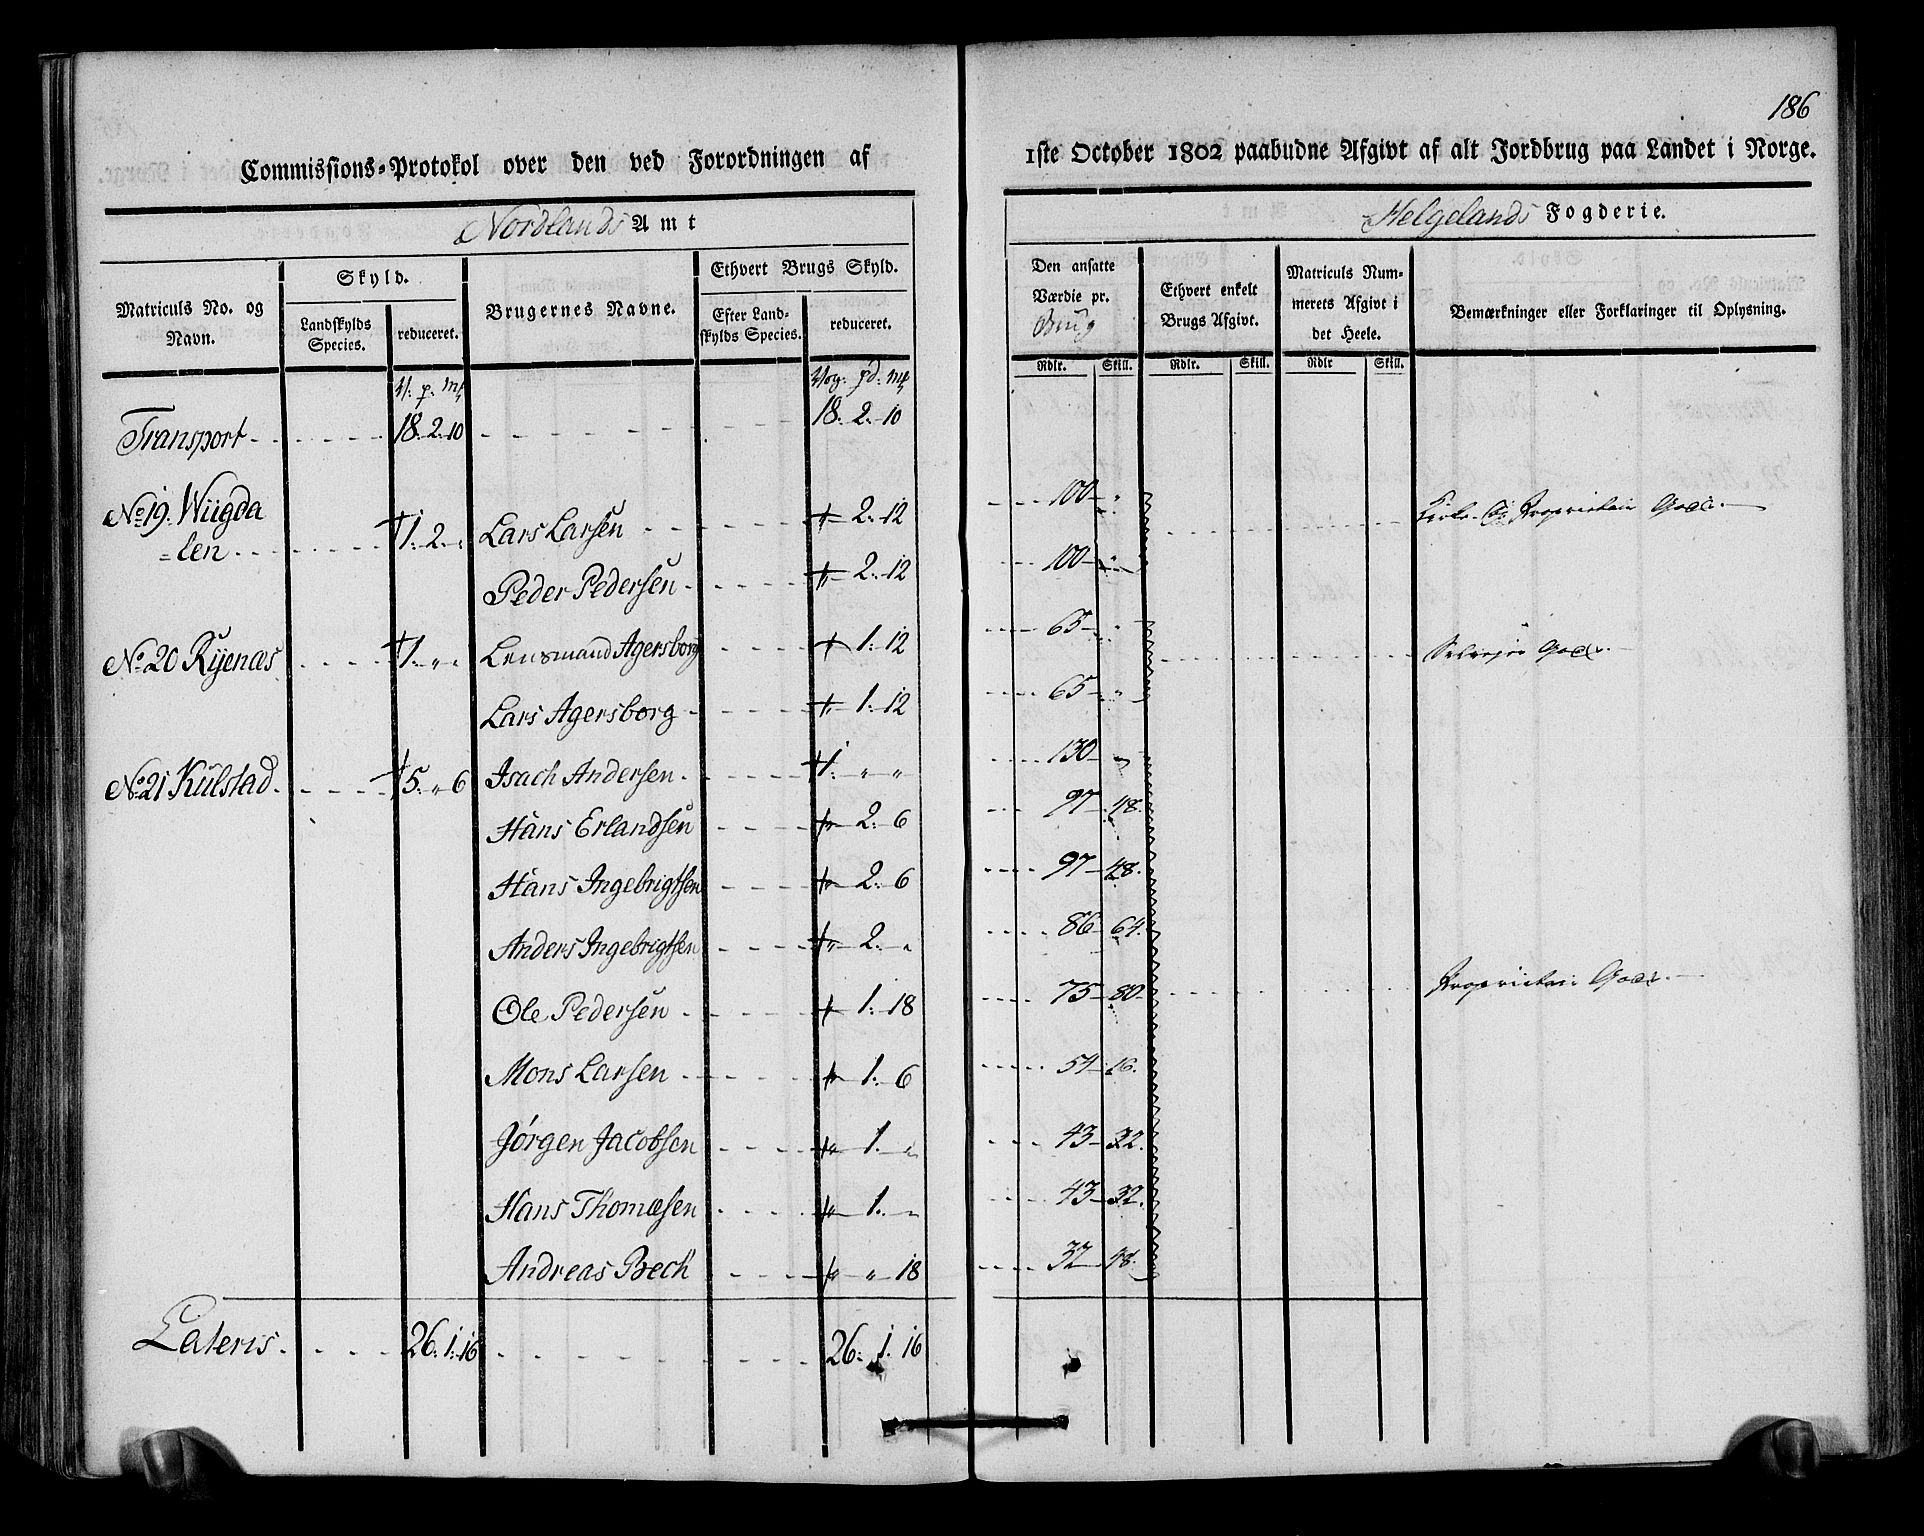 186
Commissions-Protokol over den ved Forordningen af 1ste October 1802 paabudne Afgivt af alt Jordbrug paa Landet i Norge.
Nordlands Amt
Helgelands Fogderie.
Matriculs No. og Navn.
Skyld.
Landskylds Species.
reduceret.
Brugernes Navne.
Ethvert Brugs Skyld.
Efter Landskylds Species.
reduceret.
Den ansatte Værdie pr. Brug
Ethvert enkelt Brugs Afgivt.
Matriculs Nummerets Afgivt i det Heele.
Bemærkninger eller Forklaringer til Oplysning.
Rdlr. Skill. Rdlr. Skill. Rdlr Skill.
V: p: mk Vog: pd: mk
Transport 18. 2. 10 18. 2. 10
No 19. Wiigda
=len 1. 2. " Lars Larsen " 2. 12 100 " Kirke- og Proprietair Gods.
Peder Pedersen " 2. 12 100 "
No 20 Rÿenæs 1. " " Lensmand Agersborg " 1. 12 65 " Selveyer Gods.
Lars Agersborg " 1. 12 65 "
No 21 Kulstad 5. " 6 Isach Andersen 1. " " 130 "
Hans Erlandsen " 2. 6 97 48.
Hans Ingebrigtsen " 2. 6 97 48.
Anders Ingebrigtsen " 2. " 86 64.
Ole Pedersen " 1. 18 75 80 Proprietair Gods.
Mons Larsen " 1. 6 54 16.
Jørgen Jacobsen " 1. " 43 32.
Hans Thomæsen " 1. " 43 32.
Andreas Bech " " 18 32 48.
Lateris 26. 1. 16 26. 1. 16